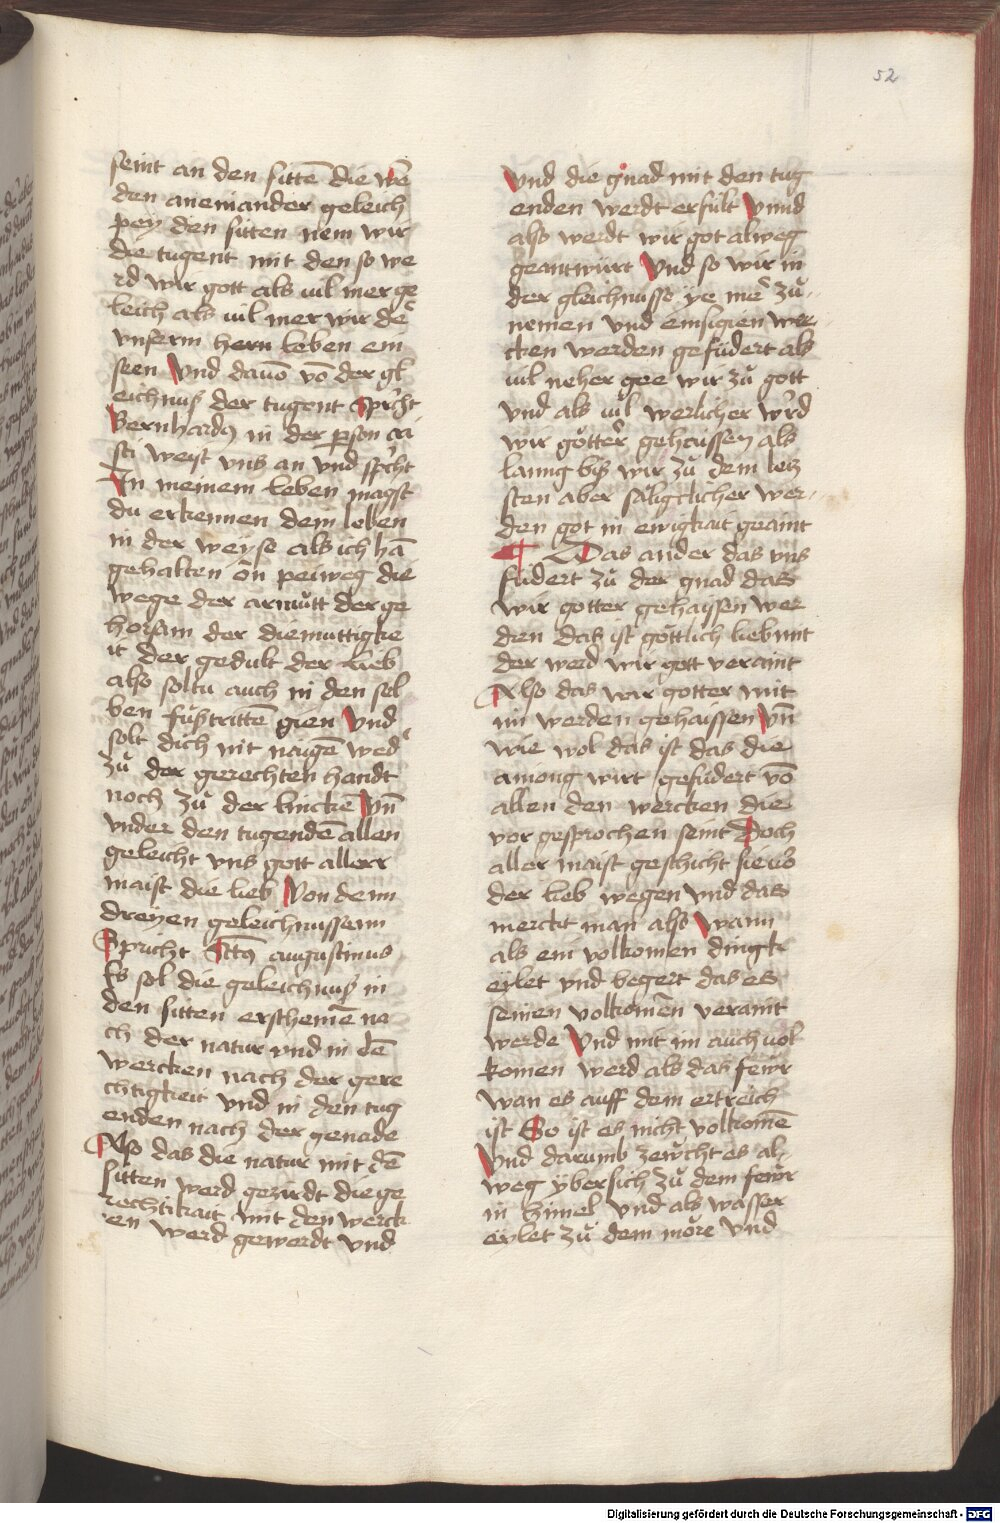 52
seint an den sittē die wē
den aneinander geleich
pey den sitten nem wir
die tugent mit den so we
rd wir gott als uil mer ge
leich als uil mer wir de
vnserm hern leben ein
seen Vnd dauō vō der gl
eichnuß der tugent Spricht
Bernhardꝰ in der pson cri
sti weist vns an vnd spricht
In meinem leben magst
du erkennen dein leben
in der weyse als ich hā
gehalten ōn peiweg die
wege der armůtt der ge
horsam der diemuttigke
it der gedult der Lieb
also soltu auch in den sel
ben fůßtrittē gien Vnd
solt dich nit naigē wed
zů der gerechten handt
noch zů der linckē Vn̄
vnder den tugendē allen
geleicht vns gott aller
maist die lieb Von denn
dreyen geleichnussenn
Spricht Sctꝰ augustinus
Es sol die geleichnuß in
den sitten erscheinē na
ch der natur vnd in dē
wercken nach der gere
chtigkeit vnd in den tug
enden nach der genade
Also das die natur mit dē
sitten werd gezirdt die ge
rechtikait mit den werck
en werd gewerdt vnd
Vnd die gnad mit den tug
enden werdt erfült Vnnd
also werdt wir got alweg
geantwürt Vnd so wir in
der gleichnusse ye me zů
nemen vnd emsigien wer
cken werden gefüdert als
uil neher gee wir zů gott
vnd als uil werlicher wird
wir götter gehaissen als
lanng biß wir zů dem lecz
sten aber säligclicher wer
den got in ewigkait geaint
¶ Das ander das vns
füdert zů der gnad das
wir gotter gehayssen wer
den daß ist göttlich lieb mit
der werd wir gott veraint
Also das wir gotter mit
im werden gehaissen Vn̄
wie wol das ist das die
aniong wirt gefüdert vō
allen den wercken die
vor gesprochen seint Doch
aller maist geschicht sie võ
der lieb wegen vnd das
merckt man also Wann
als ein volkomen dingk
eylet vnd begert das es
seinen volkomēn veraint
werde Vnd mit im auch uol
komen werd als das fewr
wan es auff dem ertreich
ist So ist es nicht volkomē
Vnd darumb zewcht es al
weg ybersich zů dem fewr
in himel vnd als wasser
eylet zů dem möre vnd
Digitalisierung gefördert durch die Deutsche Forschungsgemeinschaft - DFG